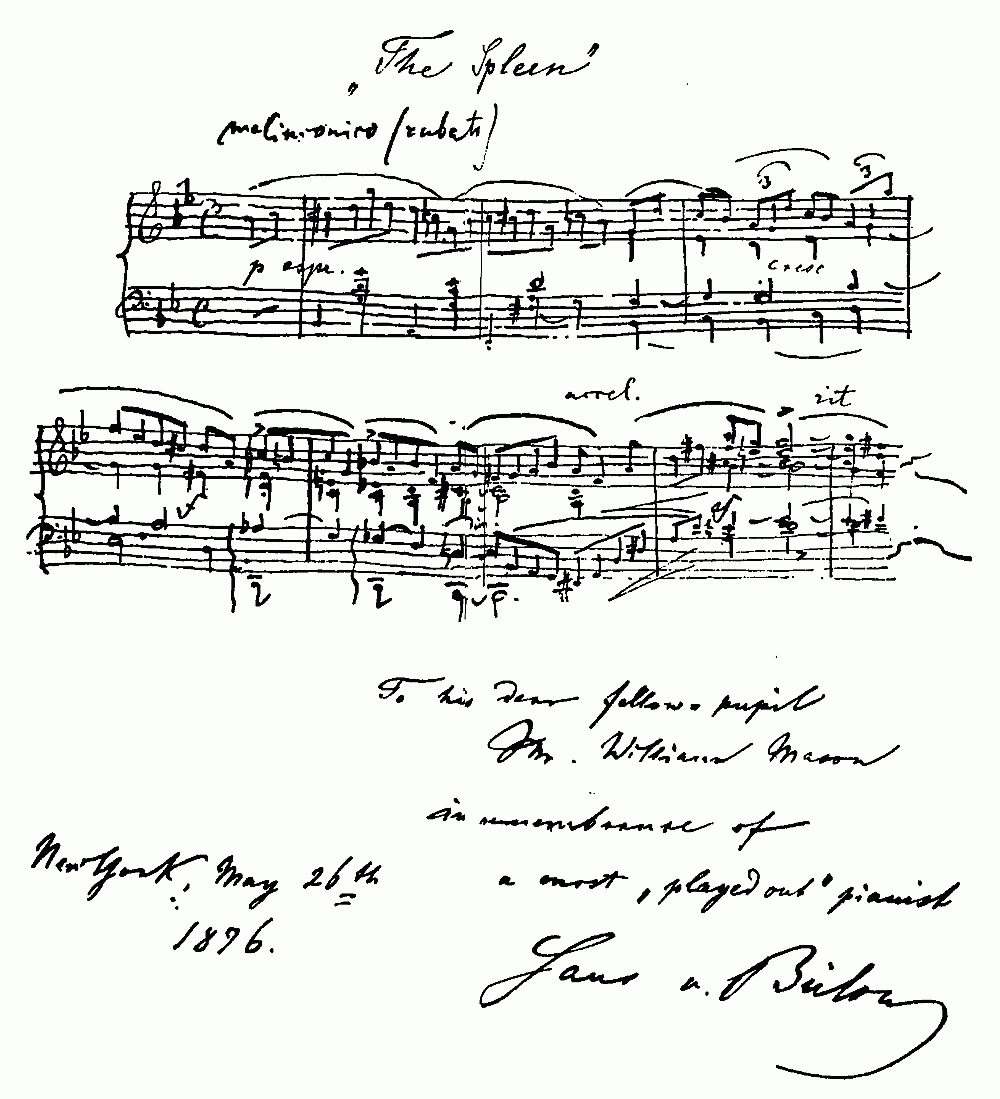 „The Spleen"
malinconico (rubato)
3 3
p espr.
cresc
accel. rit
To his dear fellow-pupil
Mr. William Mason
in remembrance of
a most „played out" pianist
New York, May 26th
1876.
Hans v. Bülow